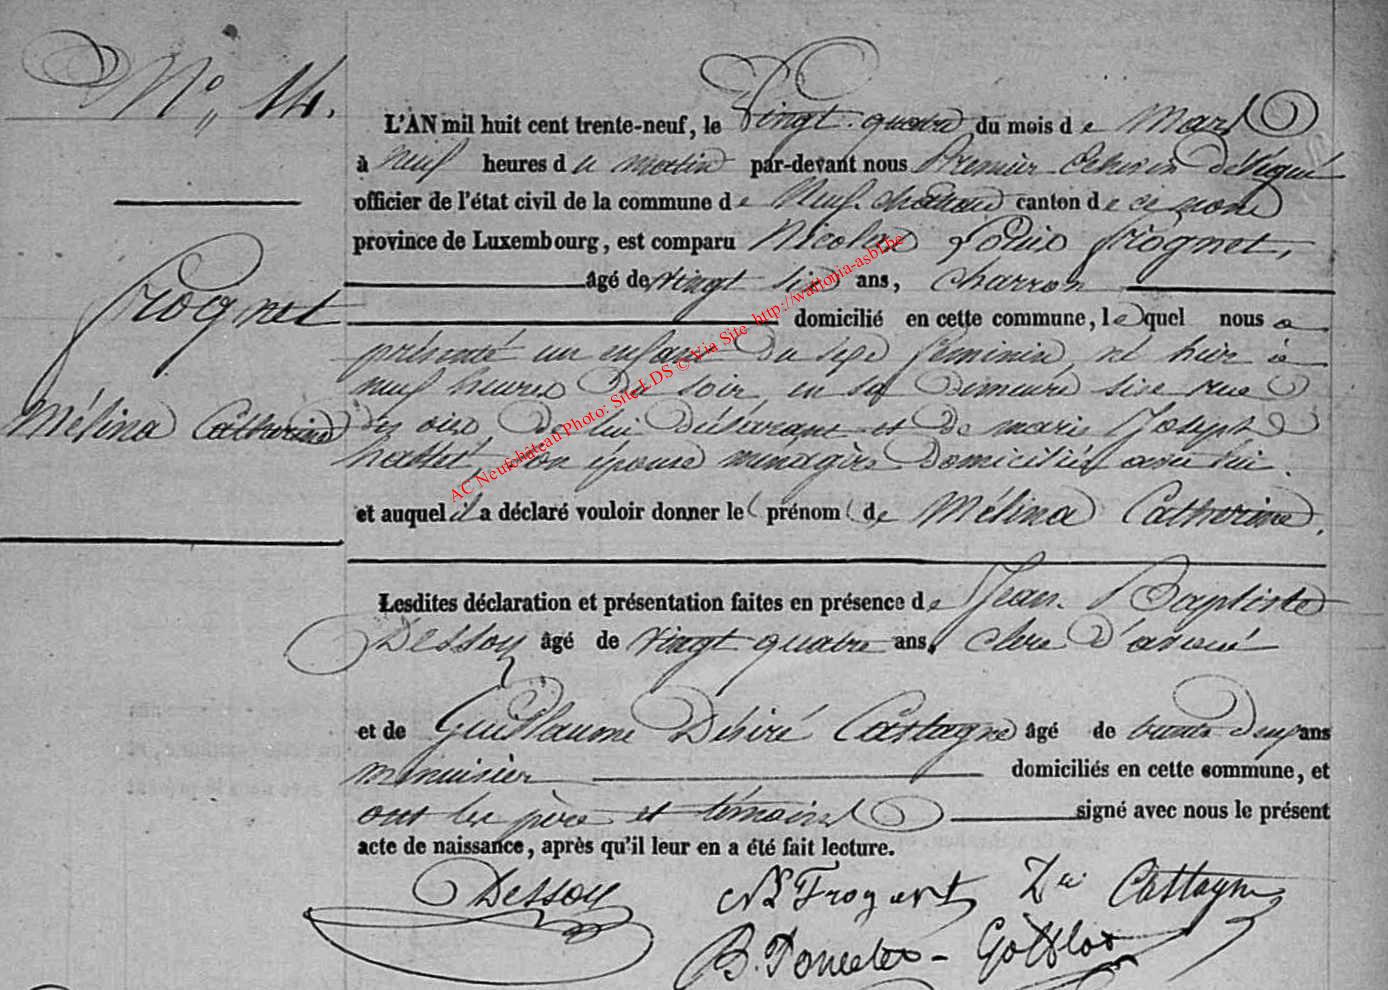 N° 14.
L'AN mil huit cent trente-neuf, le Vingt quatre du mois de Mars
à neuf heures du matin par-devant nous Premier Echevin délégué
officier de l'état civil de la commune de Neufchateau canton de ce nom
province de Luxembourg, est comparu Nicolas Louis Frognet,
âgé de vingt six ans, charron
domicilié en cette commune, lequel nous a
présenté un enfant du sexe feminin, né hier à
neuf heures du soir, en sa demeure sise rue
de lui déclarant et de marie Joseph
son épouse menagère domiciliée avec lui.
et auquel il a déclaré vouloir donner le prénom de Mélina Catherine,
Lesdites déclaration et présentation faites en présence de Jean Baptiste
Dessoy âgé de vingt quatre ans, clerc d'avoué
et de Guillaume Désiré Castagne âgé de trente deux ans
menuisier domiciliés en cette commune, et
ont les père et témoins signé avec nous le présent
acte de naissance, après qu'il leur en a été fait lecture.
Frognet
Mélina Catherine
Dessoy NL Frognet Castagne
B. Poncelet - Gofflot
AC Neufchâteau Photo: Site LDS © Via Site http://wallonia-asbl.be